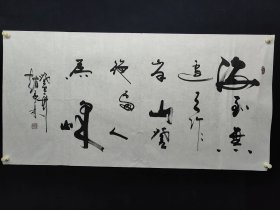 海到無
邊天作
岸山登
絕頂人
為峰